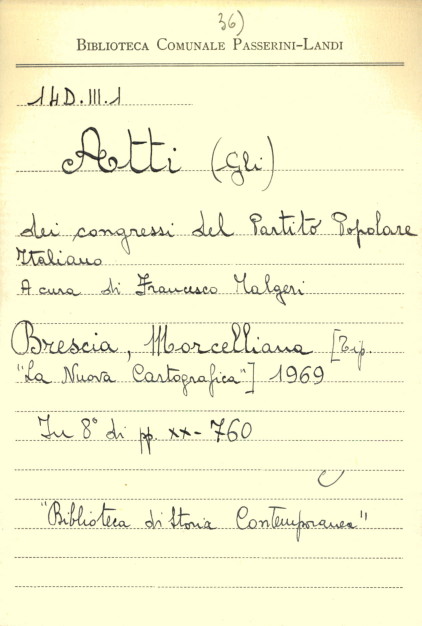 36)
BIBLIOTECA COMUNALE PASSERINI-LANDI
14D.III.1
Atti (Gli)
dei congressi del Partito Popolare
Italiano
A cura di Francesco Malgeri
Brescia, Morcelliana [Tip.
"La Nuova Cartografica"] 1969
In 8° di pp. xx-760
"Biblioteca di Storia Contemporanea"